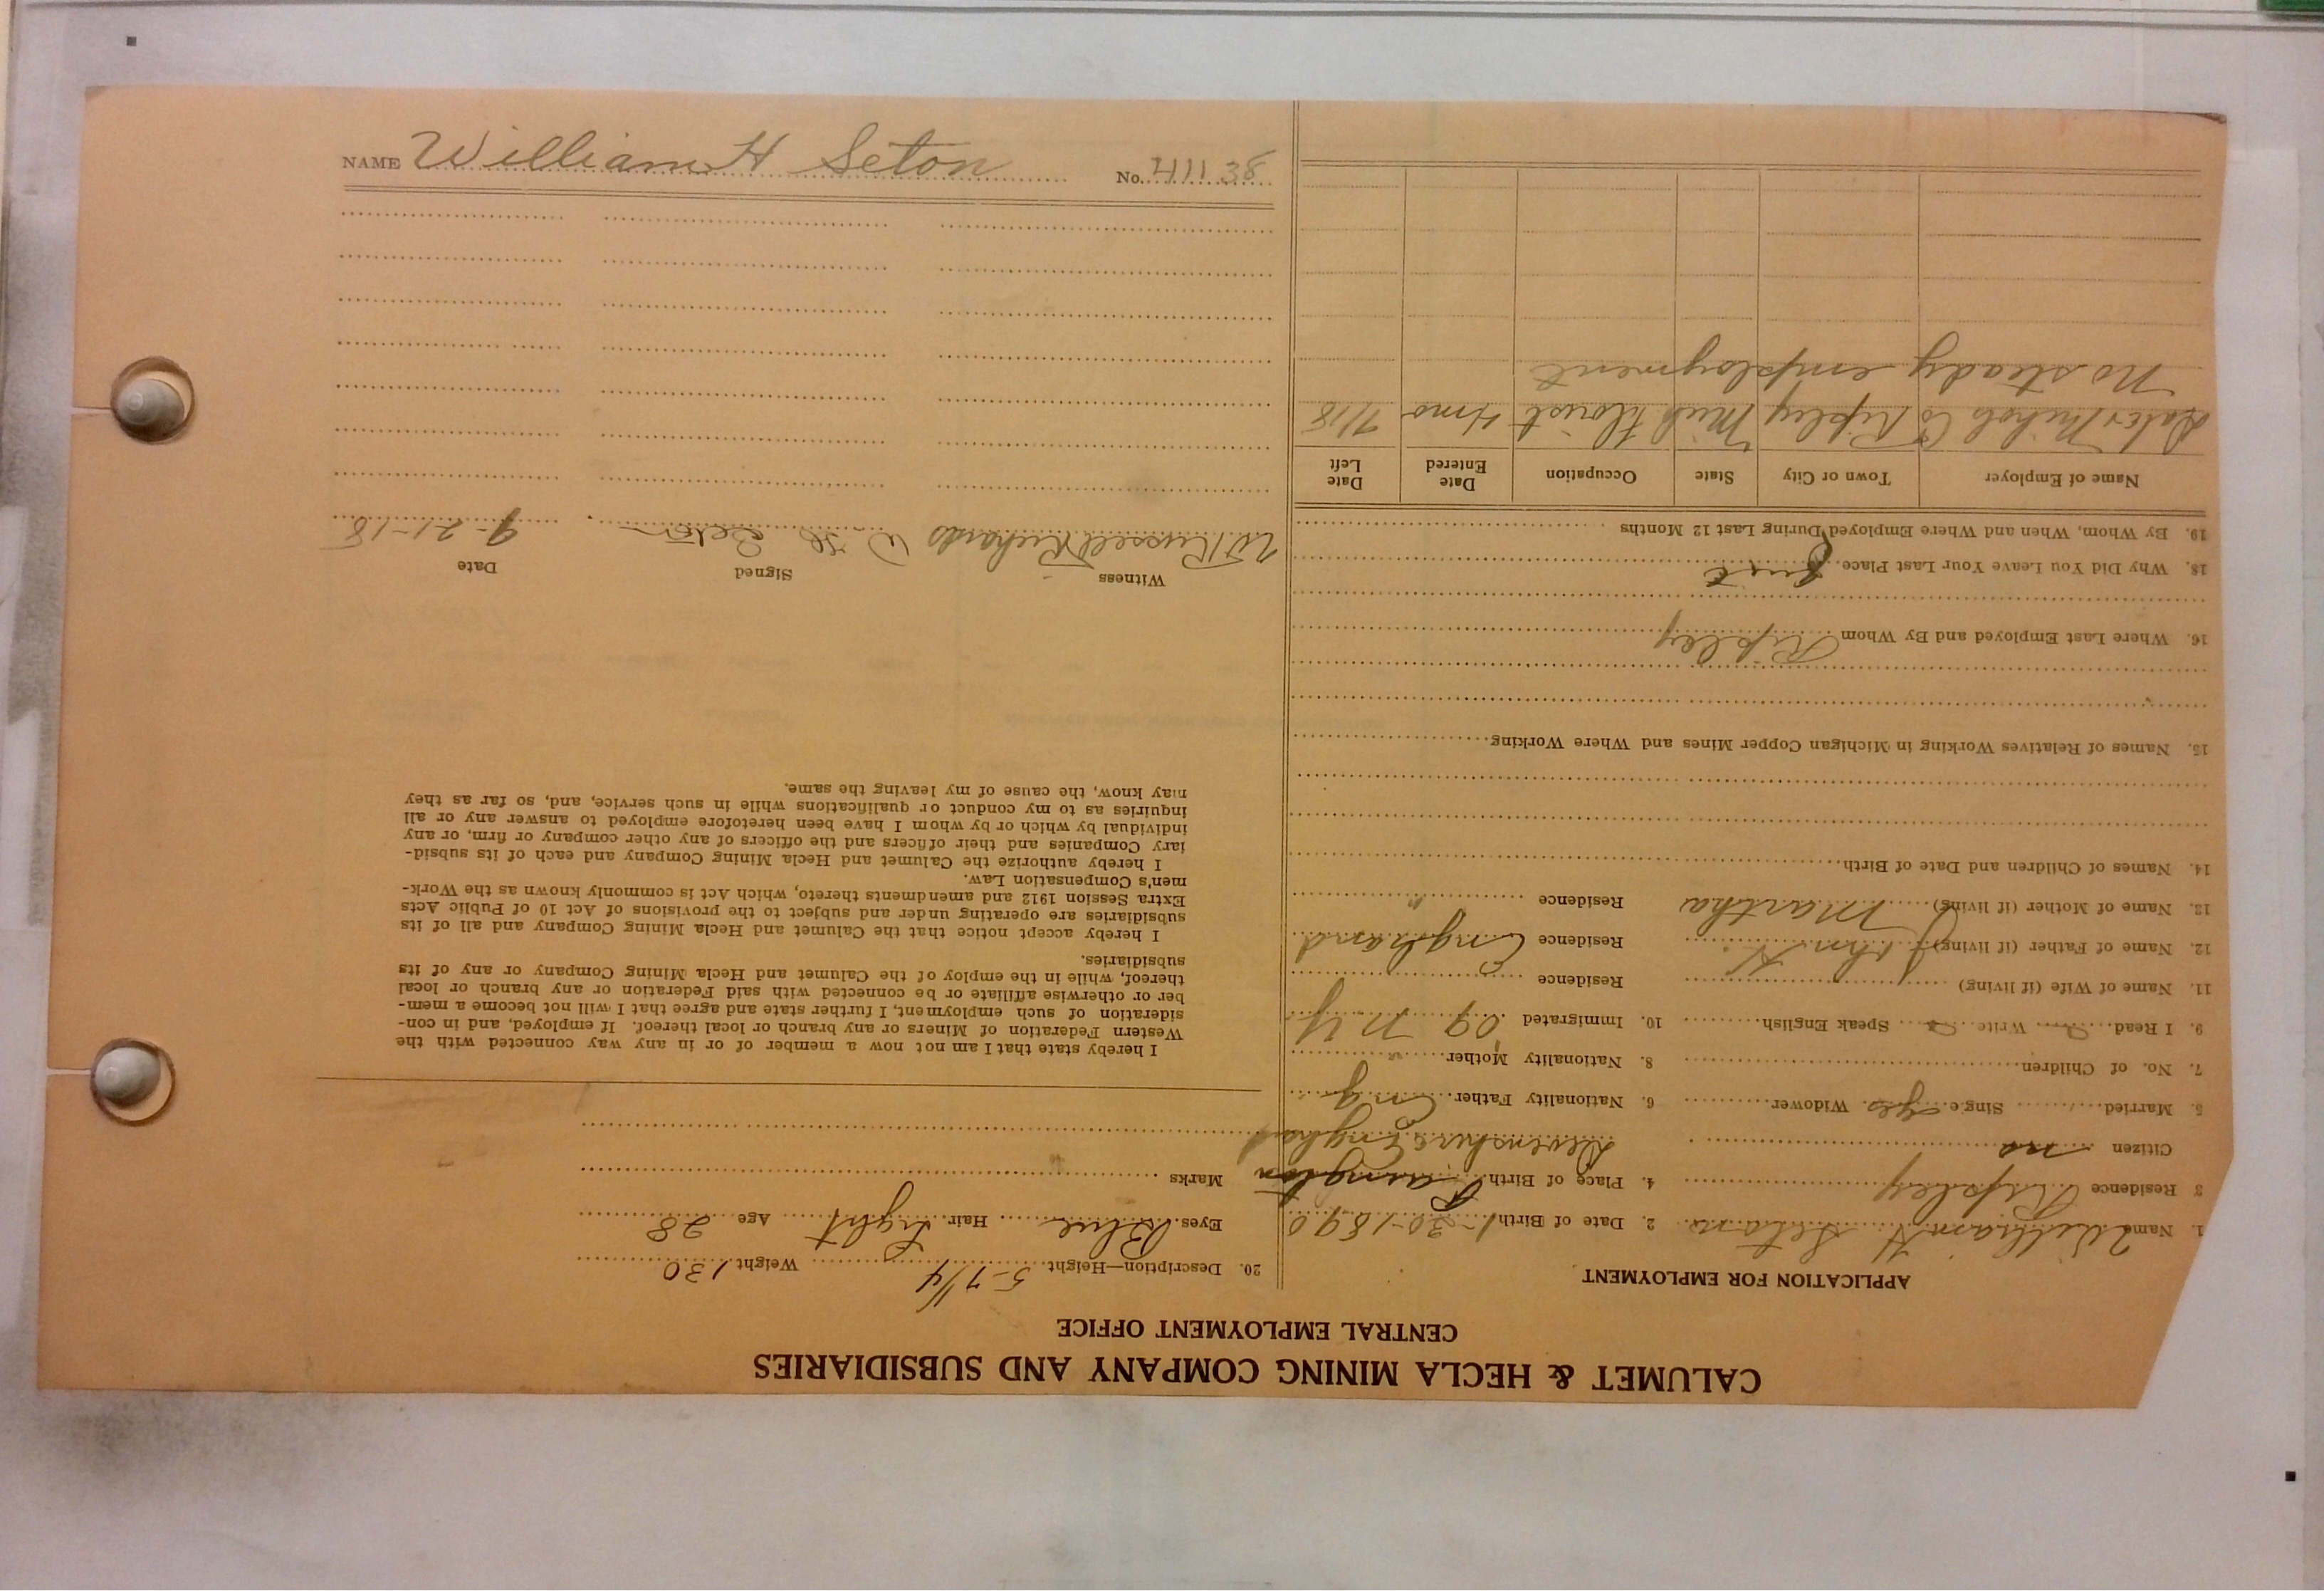 CALUMET & HECLA MINING COMPANY AND SUBSIDIARIES
CENTRAL EMPLOYMENT OFFICE
APPLICATION FOR EMPLOYMENT
1. Name William H Seton 2. Date of Birth 1-30-1890
3 Residence Ripley 4. Place of Birth Paington
Citizen no Devenshire England
5. Married Single yes Widower 6. Nationality Father Eng
7. No. of Children 8. Nationality Mother "
9. I Read Write Speak English 10. Immigrated 09 NY
11. Name of Wife (if living) Residence
12. Name of Father (if living) John H. Residence England
13. Name of Mother (if living) Martha Residence "
14. Names of Children and Date of Birth
15. Names of Relatives Working in Michigan Copper Mines and Where Working
16. Where Last Employed and By Whom Ripley
18. Why Did You Leave Your Last Place Quit
19. By Whom, When and Where Employed During Last 12 Months
Name of Employer Town or City State Occupation Date Entered Date Left
Co Ripley Mich Florist 4 mo 7/18
No steady employment
20. Description—Height 5-7 1/4 Weight 130
Eyes Blue Hair Light Age 28
Marks
I hereby state that I am not now a member of or in any way connected with the
Western Federation of Miners or any branch or local thereof. If employed, and in con-
sideration of such employment, I further state and agree that I will not become a mem-
ber or otherwise affiliate or be connected with said Federation or any branch or local
thereof, while in the employ of the Calumet and Hecla Mining Company or any of its
subsidiaries.
I hereby accept notice that the Calumet and Hecla Mining Company and all of its
subsidiaries are operating under and subject to the provisions of Act 10 of Public Acts
Extra Session 1912 and amendments thereto, which Act is commonly known as the Work-
men's Compensation Law.
I hereby authorize the Calumet and Hecla Mining Company and each of its subsid-
iary Companies and their officers and the officers of any other company or firm, or any
individual by which or by whom I have been heretofore employed to answer any or all
inquiries as to my conduct or qualifications while in such service, and, so far as they
may know, the cause of my leaving the same.
Witness Signed Date
W Russell Richards W. H. Seton 9-21-18
NAME William H Seton No. 41138